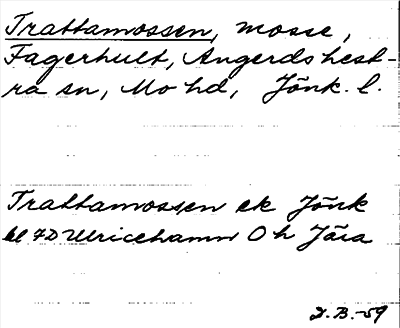 Trattamossen, mosse,
Fagerhult, Angerdshest-
ra sn, Mo hd, Jönk. l.
Trattamossen ek Jönk
bl 7D Ulricehamn Öh Jära
J.B.-59